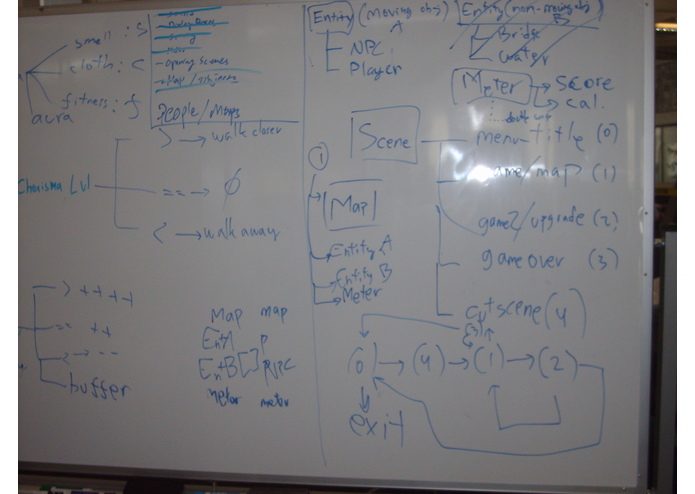 smell : S
cloth : C
fitness : f
aura
- Opening Scenes
People/Maps
> → walk closer
Charisma Lvl
== → Ø
< → walk away
> ++++
== ++
< → --
buffer
Map map
EntA P
EntB [ ]
meter
Entity (moving obj)
A
NPC
Player
Entity (non-moving obj)
B
Bridge
water
Meter → score
→ cal.
1
Scene
menu - title (0)
game/map (1)
game2/upgrade (2)
game over (3)
cutscene (4)
Map
→ Entity A
Entity B
→ Meter
(3)
(0) → (4) → (1) → (2)
exit